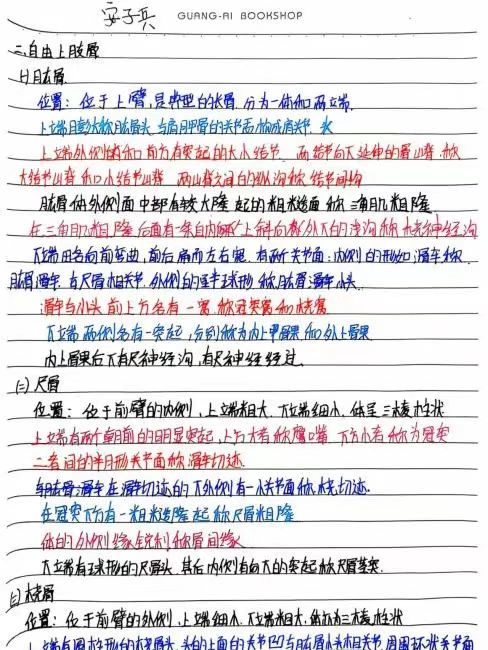 安子兵 GUANG-AI BOOKSHOP
二.自由上肢骨
(一)肱骨
位置：位于上臂,是典型的长骨,分为一体和两端.
上端膨大称肱骨头,与肩胛骨的关节盂构成肩关节.
上端外侧和前方有突起的大小结节 两结节向下延伸的骨山脊,称
大结节山脊和小结节山脊 两山脊之间的纵沟称结节间沟
肱骨体外侧面中部有较大隆起的粗糙面称三角肌粗隆
在三角肌粗隆后面有一条自内上斜向外下的浅沟称桡神经沟
下端略向前弯曲,前后扁而左右宽.有两个关节面:内侧的形如滑车称
肱骨滑车,与尺骨相关节.外侧的呈半球形 称肱骨小头.
滑车与小头前上方各有一窝,称冠突窝和桡窝
下端两侧各有一突起,分别称为内上髁和外上髁
内上髁后下有尺神经沟,有尺神经经过.
(二)尺骨
位置：位于前臂的内侧,上端粗大,下端细小,体呈三棱柱状
上端有两个朝前的明显突起,上方大者称鹰嘴 下方小者称为冠突
二者间的半月形关节面称滑车切迹.
在滑车切迹的下外侧有一小关节面称桡切迹.
在冠突下方有一粗糙隆起称尺骨粗隆
体的外侧缘锐利称骨间缘
下端有球形的尺骨头,其后内侧有向下的突起称尺骨茎突.
(三)桡骨
位置：位于前臂的外侧,上端细小,下端粗大,体亦为三棱柱状
上端有圆柱形的桡骨头,头的上面的关节凹与肱骨小头相关节,周围环状关节面